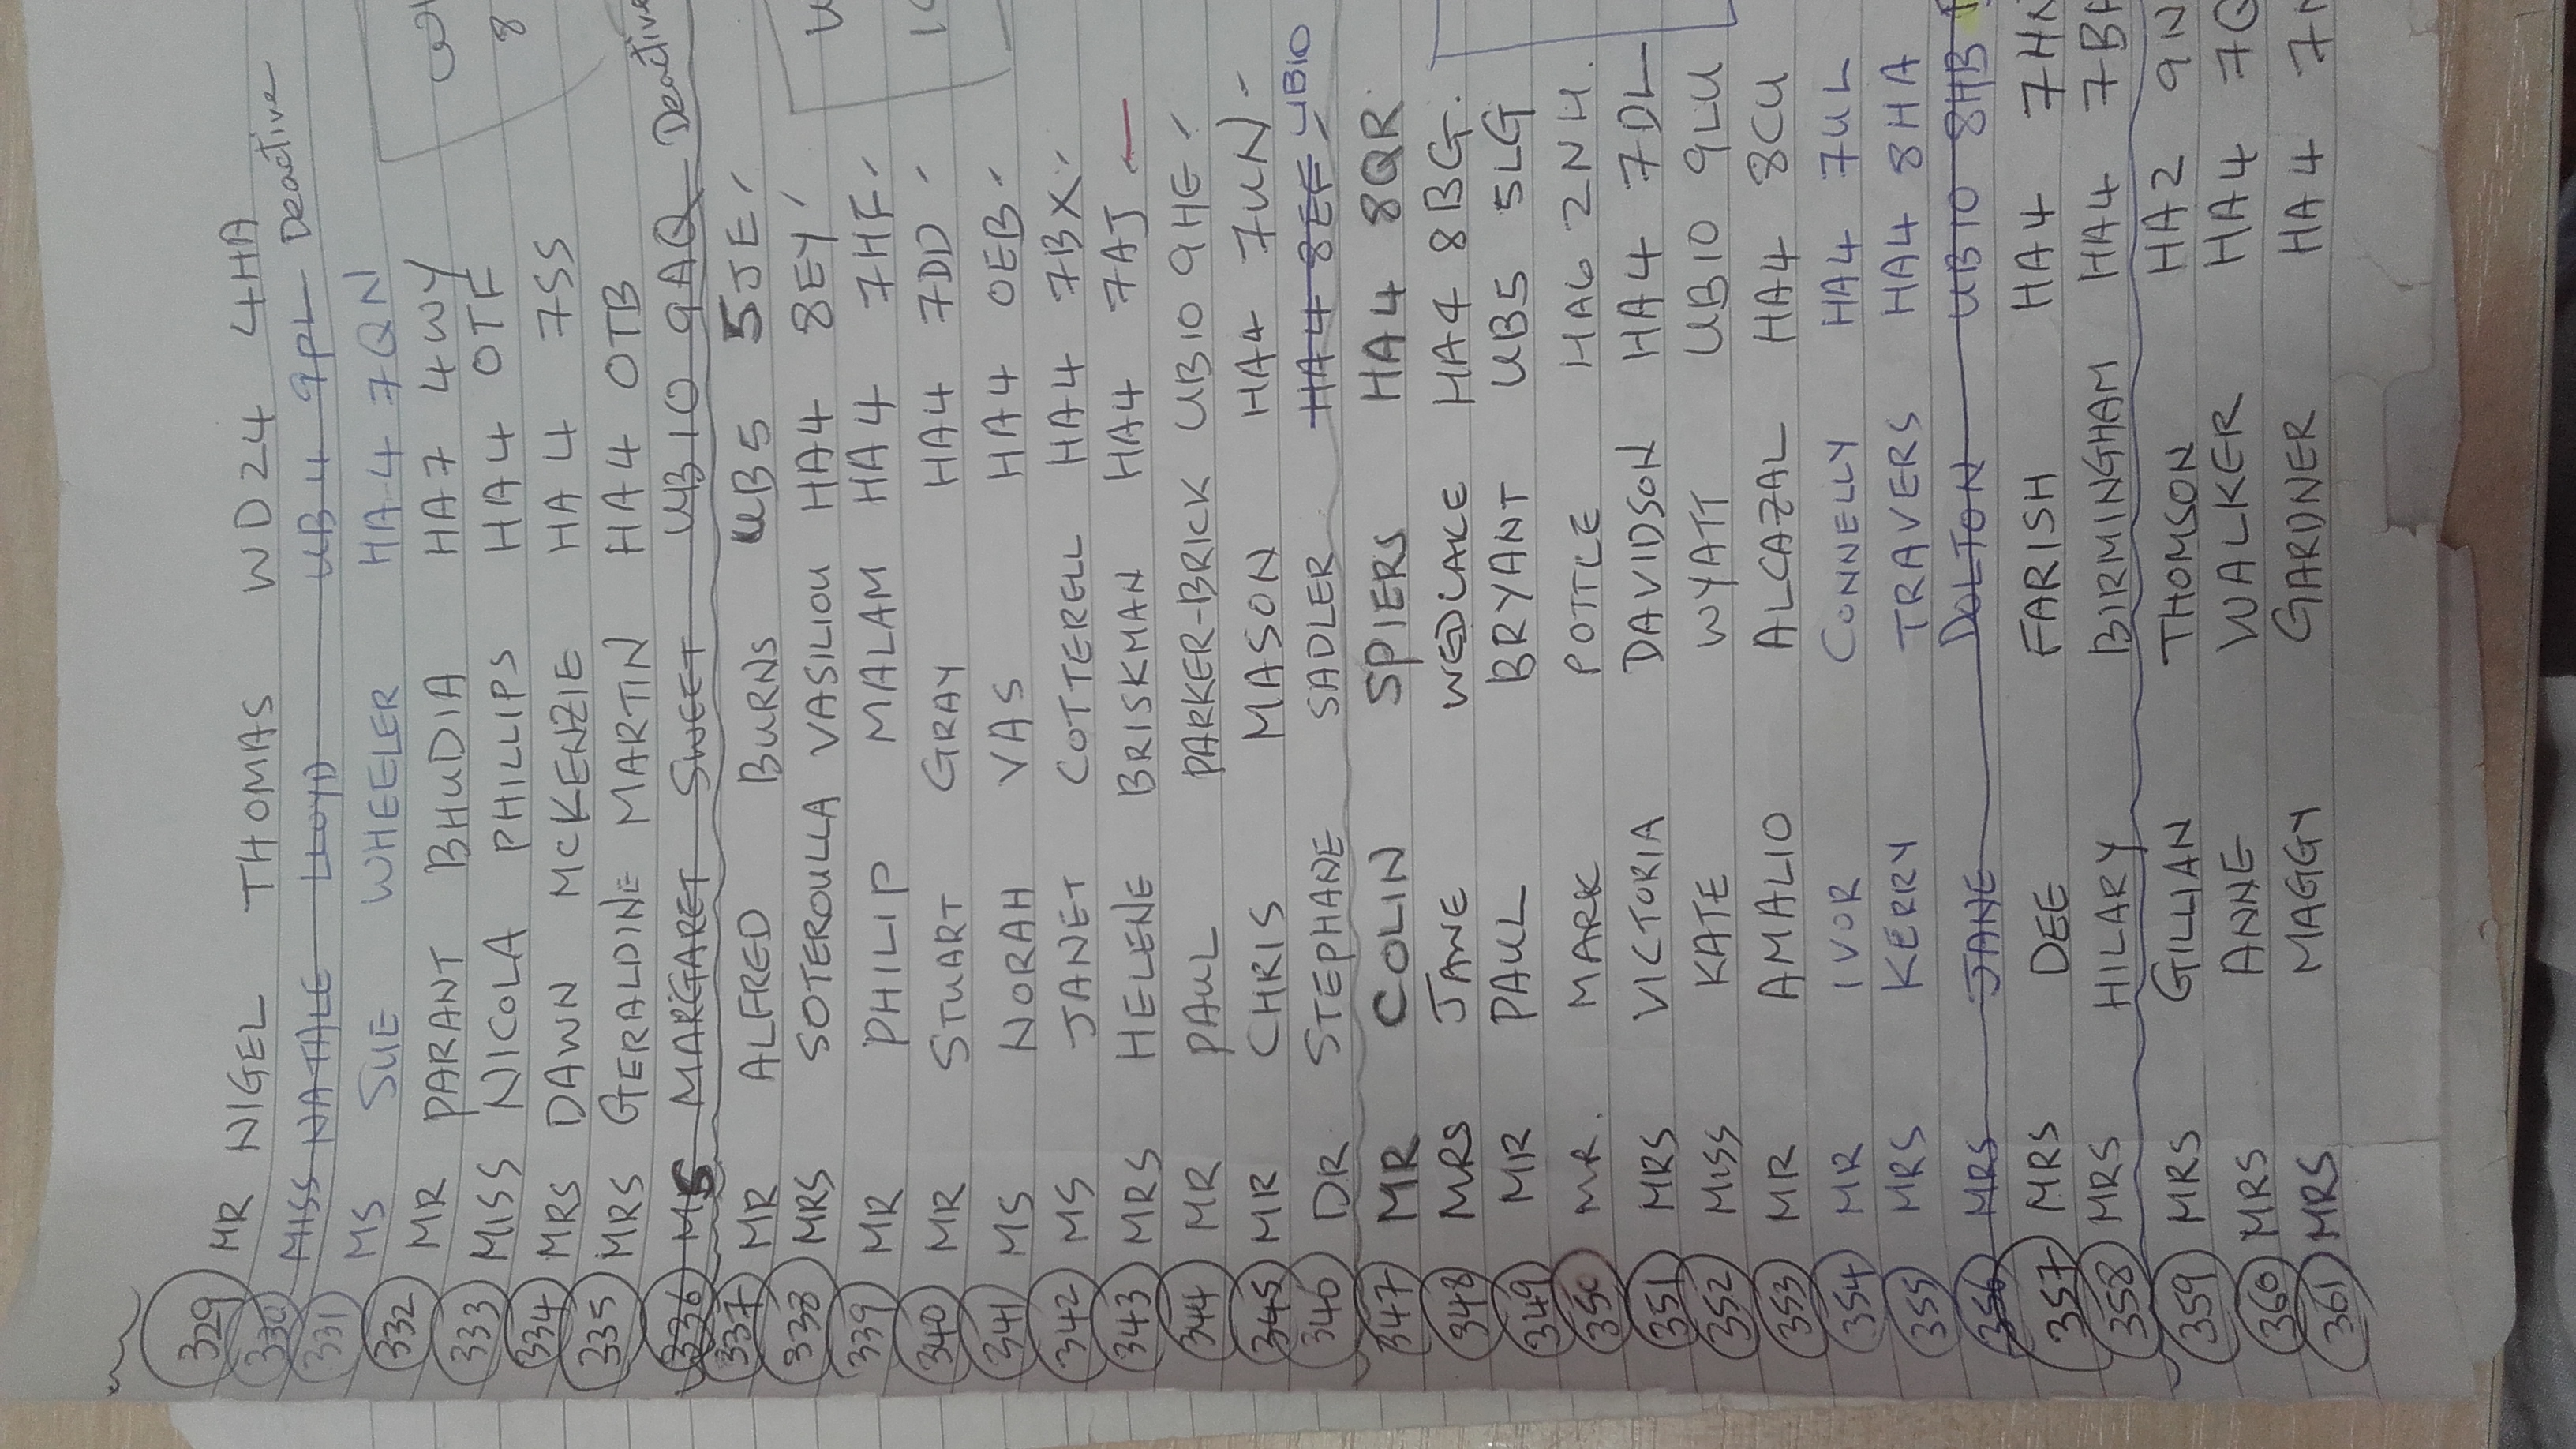 329 MR NIGEL THOMAS WD24 4HA
330 MISS NATALE LLOYD UB4 9PL Deactive
331 MS SUE WHEELER HA4 7QN
332 MR PARANT BHUDIA HA7 4WY
333 MISS NICOLA PHILLIPS HA4 0TF
8
334 MRS DAWN MCKENZIE HA4 7SS
335 MRS GERALDINE MARTIN HA4 0TB
336 MS MARGARET SWEET UB10 9AQ Deactive
337 MR ALFRED BURNS UB5 5JE
338 MRS SOTEROULLA VASILIOU HA4 8EY
339 MR PHILIP MALAM HA4 7HF
340 MR STUART GRAY HA4 7DD
341 MS NORAH VAS HA4 0EB
342 MS JANET COTTERELL HA4 7BX
343 MRS HELENE BRISKMAN HA4 7AJ
344 MR PAUL PARKER-BRICK UB10 9HE
345 MR CHRIS MASON HA4 7UN
346 DR STEPHANE SADLER HA4 8EF UB10
347 MR COLIN SPIERS HA4 8QR
348 MRS JANE WEDLAKE HA4 8BG.
349 MR PAUL BRYANT UB5 5LG
350 MR. MARK POTTLE HA6 2NH.
351 MRS VICTORIA DAVIDSON HA4 7DL
352 MISS KATE WYATT UB10 9LU
353 MR AMALIO ALCAZAL HA4 8CU
354 MR IVOR CONNELLY HA4 7UL
355 MRS KERRY TRAVERS HA4 8HA
356 MRS JANE DOLTON UB10 8HB
357 MRS DEE FARISH HA4 7HN
358 MRS HILARY BIRMINGHAM HA4
359 MRS GILLIAN THOMSON HA2 9N
360 MRS ANNE WALKER HA4
361 MRS MAGGY GARDNER HA4